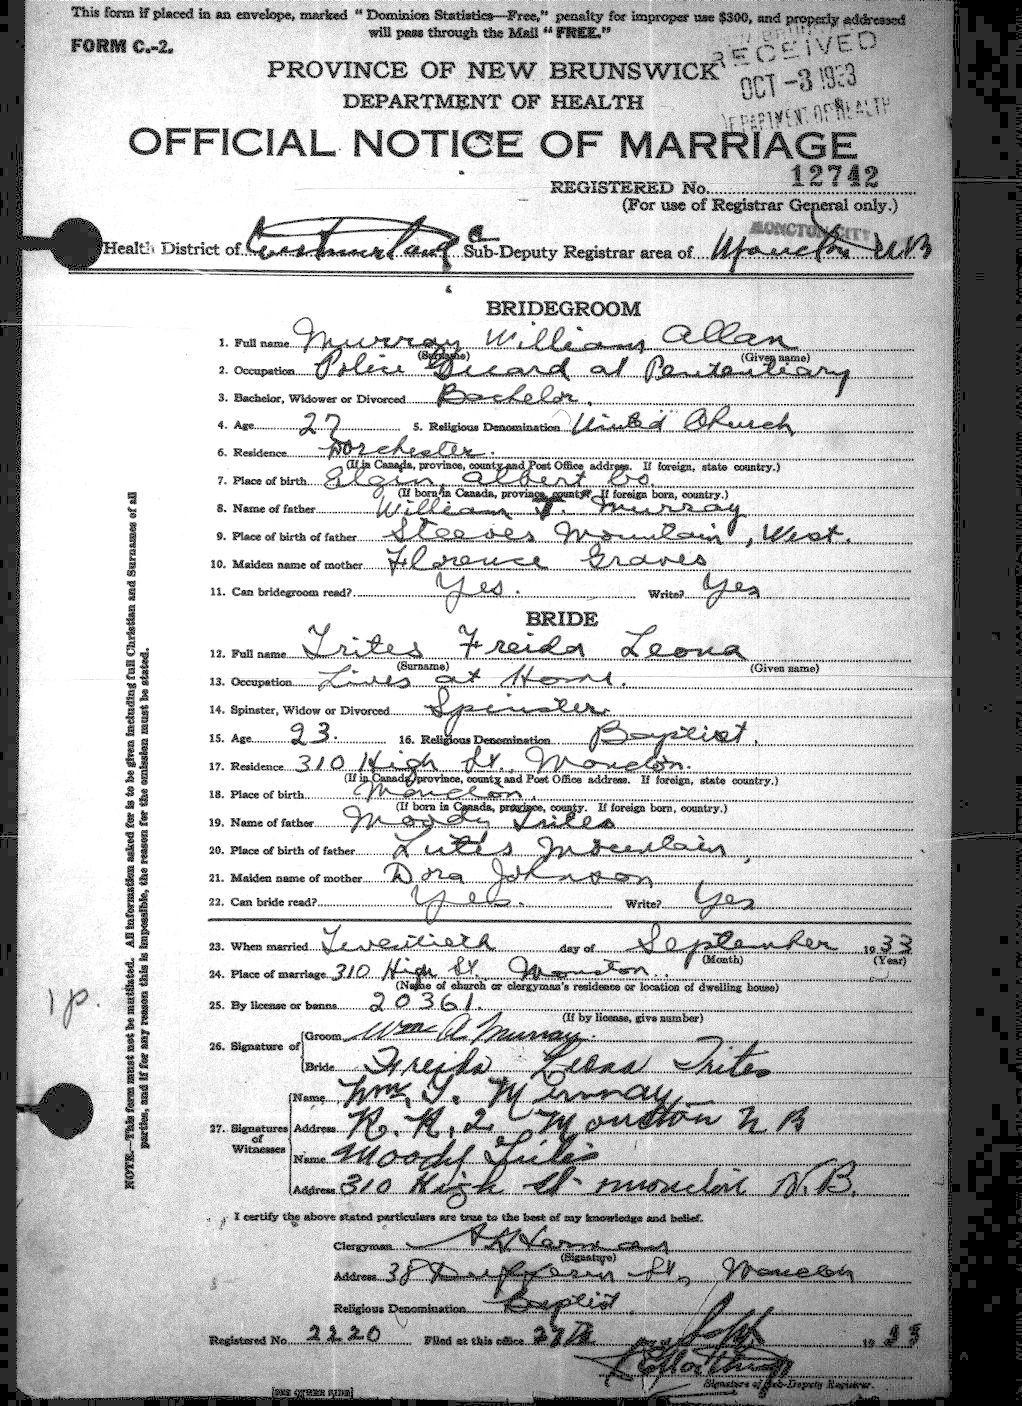 This form if placed in an envelope, marked "Dominion Statistics—Free," penalty for improper use $300, and properly addressed
will pass through the Mail "FREE."
FORM C.-2.
RECEIVED
OCT -3 1933
DEPARTMENT OF HEALTH
PROVINCE OF NEW BRUNSWICK
DEPARTMENT OF HEALTH
OFFICIAL NOTICE OF MARRIAGE
REGISTERED No. 12742
(For use of Registrar General only.)
MONCTON CITY
Health District of Westmorland Co Sub-Deputy Registrar area of Moncton N.B
BRIDEGROOM
1. Full name Murray William Allan
(Surname) (Given name)
2. Occupation Police Guard at Penitentiary
3. Bachelor, Widower or Divorced Bachelor.
4. Age 27 5. Religious Denomination United Church
6. Residence Dorchester.
(If in Canada, province, county and Post Office address. If foreign, state country.)
7. Place of birth Elgin, Albert Co
(If born in Canada, province, county. If foreign born, country.)
8. Name of father William T. Murray
9. Place of birth of father Steeves Mountain, West.
10. Maiden name of mother Florence Graves
11. Can bridegroom read? Yes. Write? Yes
BRIDE
12. Full name Trites Freida Leona
(Surname) (Given name)
13. Occupation Lives at Home.
14. Spinster, Widow or Divorced Spinster.
15. Age 23. 16. Religious Denomination Baptist.
17. Residence 310 High St., Moncton.
(If in Canada, province, county and Post Office address. If foreign, state country.)
18. Place of birth Moncton.
(If born in Canada, province, county. If foreign born, country.)
19. Name of father Moody Trites
20. Place of birth of father Lutes Mountain,
21. Maiden name of mother Dora Johnson
22. Can bride read? Yes. Write? Yes
23. When married Twentieth day of September 1933
(Month) (Year)
24. Place of marriage 310 High St. Moncton.
(Name of church or clergyman's residence or location of dwelling house)
25. By license or banns 20361.
(If by license, give number)
26. Signature of Groom Wm A. Murray.
Bride Freida Leona Trites
27. Signatures of Witnesses
Name Wm. T. Murray
Address R. R. 2 Moncton N B
Name Moody Trites
Address 310 High St. Moncton N.B.
I certify the above stated particulars are true to the best of my knowledge and belief.
Clergyman
(Signature)
Address 38 Dufferin St., Moncton
Religious Denomination Baptist.
Registered No. 2220 Filed at this office 27th day of Sept 1933
Signature of Sub-Deputy Registrar.
[SEE OTHER SIDE]
NOTE.—This form must not be mutilated. All information asked for is to be given including full Christian and Surnames of all
parties, and if for any reason this is impossible, the reason for the omission must be stated.
1 p.